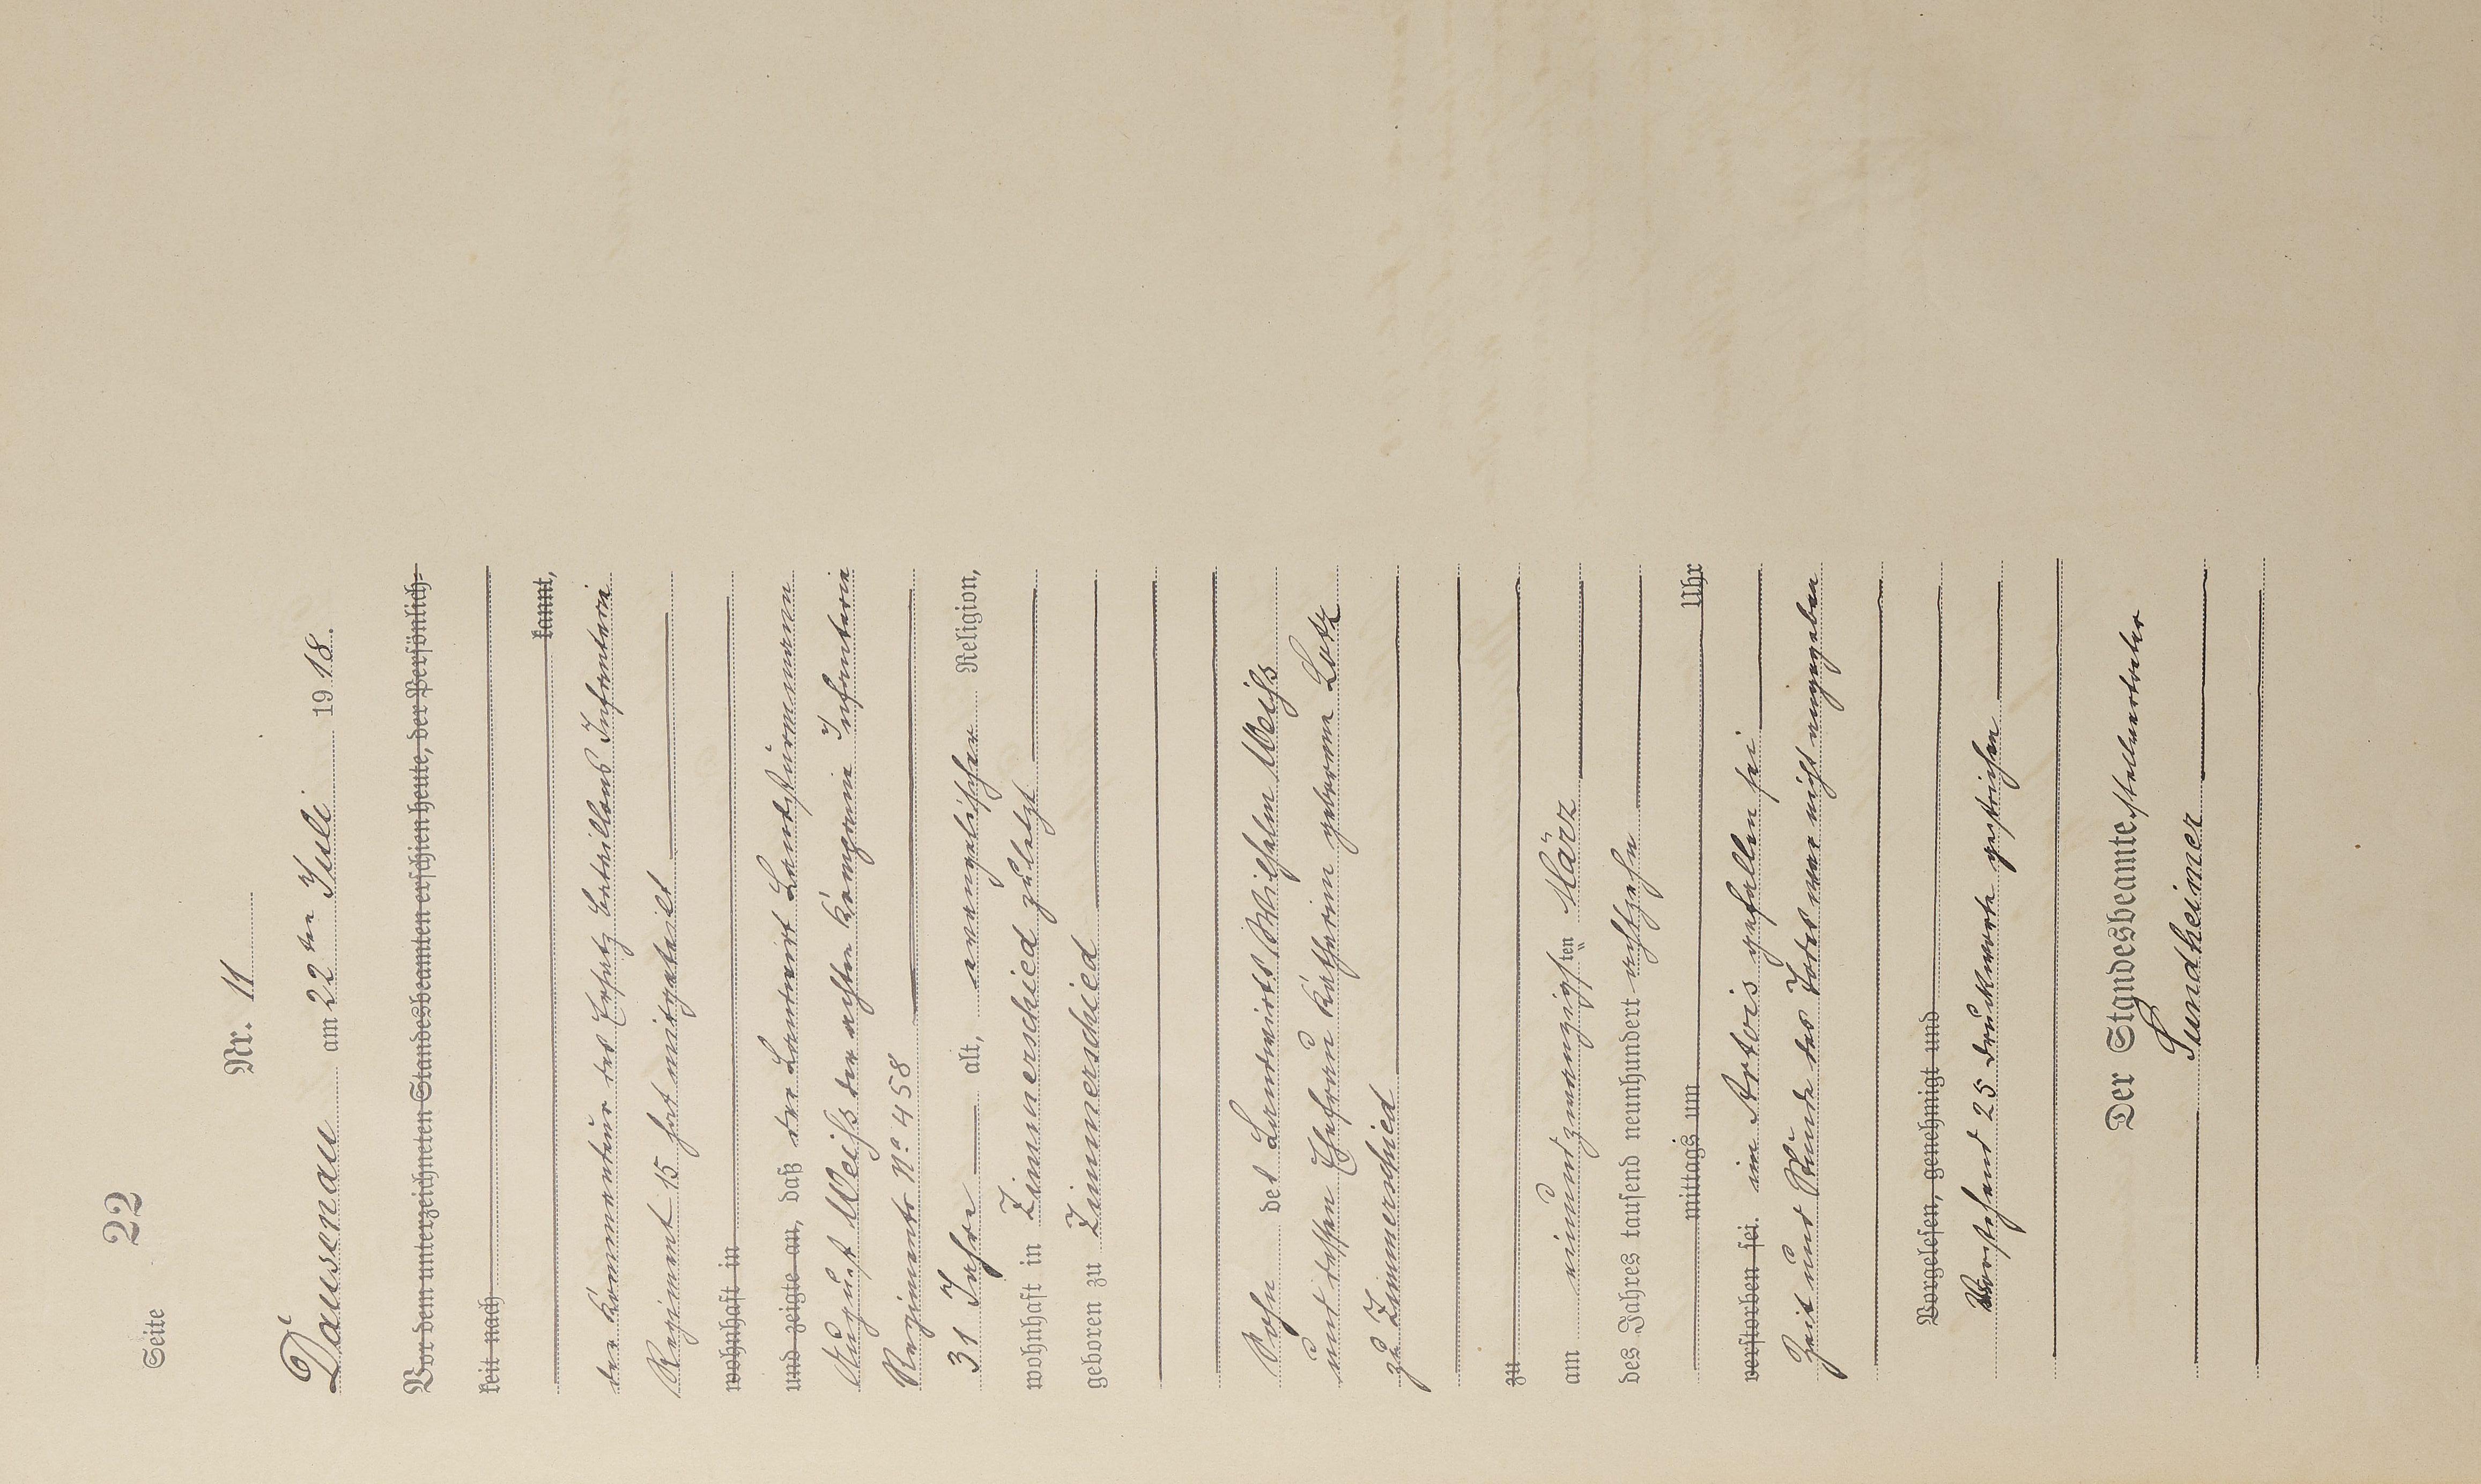 Seite 22
Nr. 11
Dausenau am 22ten Juli 1918.
Vor dem unterzeichneten Standesbeamten erschien heute, der Persönlich-
keit nach
kannt,
der Kommandeur des Ersatz Bataillons Infanterie
Regiment 15 hat mitgeteilt
wohnhaft in
und zeigte an, daß der Landwirt Landsturmmann
August Weiß der achten Kompanie Infanterie
Regiments No 458
31 Jahre alt, evangelischer Religion,
wohnhaft in Zimmerschied zuletzt
geboren zu Zimmerschied
Sohn des Landwirts Wilhelm Weiß
und dessen Ehefrau Katharina geborene Lotz
zu Zimmerschied
zu
am einundzwanzigsten März
des Jahres tausend neunhundert achtzehn
mittags um Uhr
verstorben sei. im Artois gefallen sei
Zeit und Stunde des Todes war nicht angegeben
Vorgelesen, genehmigt und
Vorstehend 25 Druckworte gestrichen
Der Standesbeamte.stellvertreter
Sundheimer